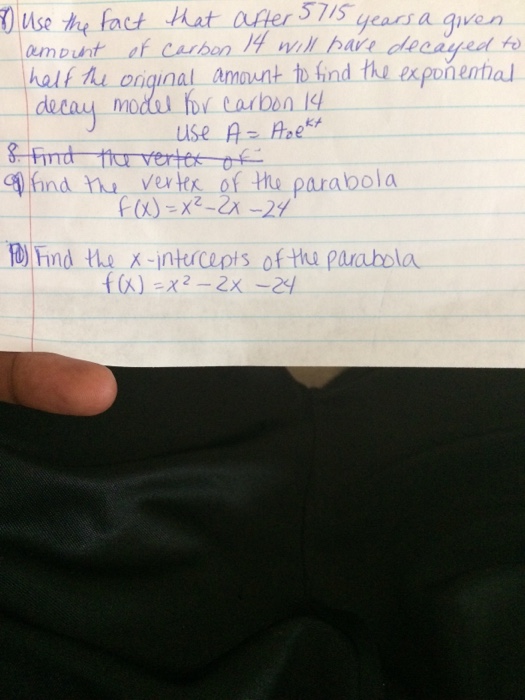 8) Use the fact that after 5715 years a given
amount of carbon 14 will have decayed to
half the original amount to find the exponential
decay model for carbon 14
Use A = A₀e^kt
8. Find the vertex of
9) find the vertex of the parabola
f(x) = x² - 2x - 24
10) Find the x-intercepts of the parabola
f(x) = x² - 2x - 24